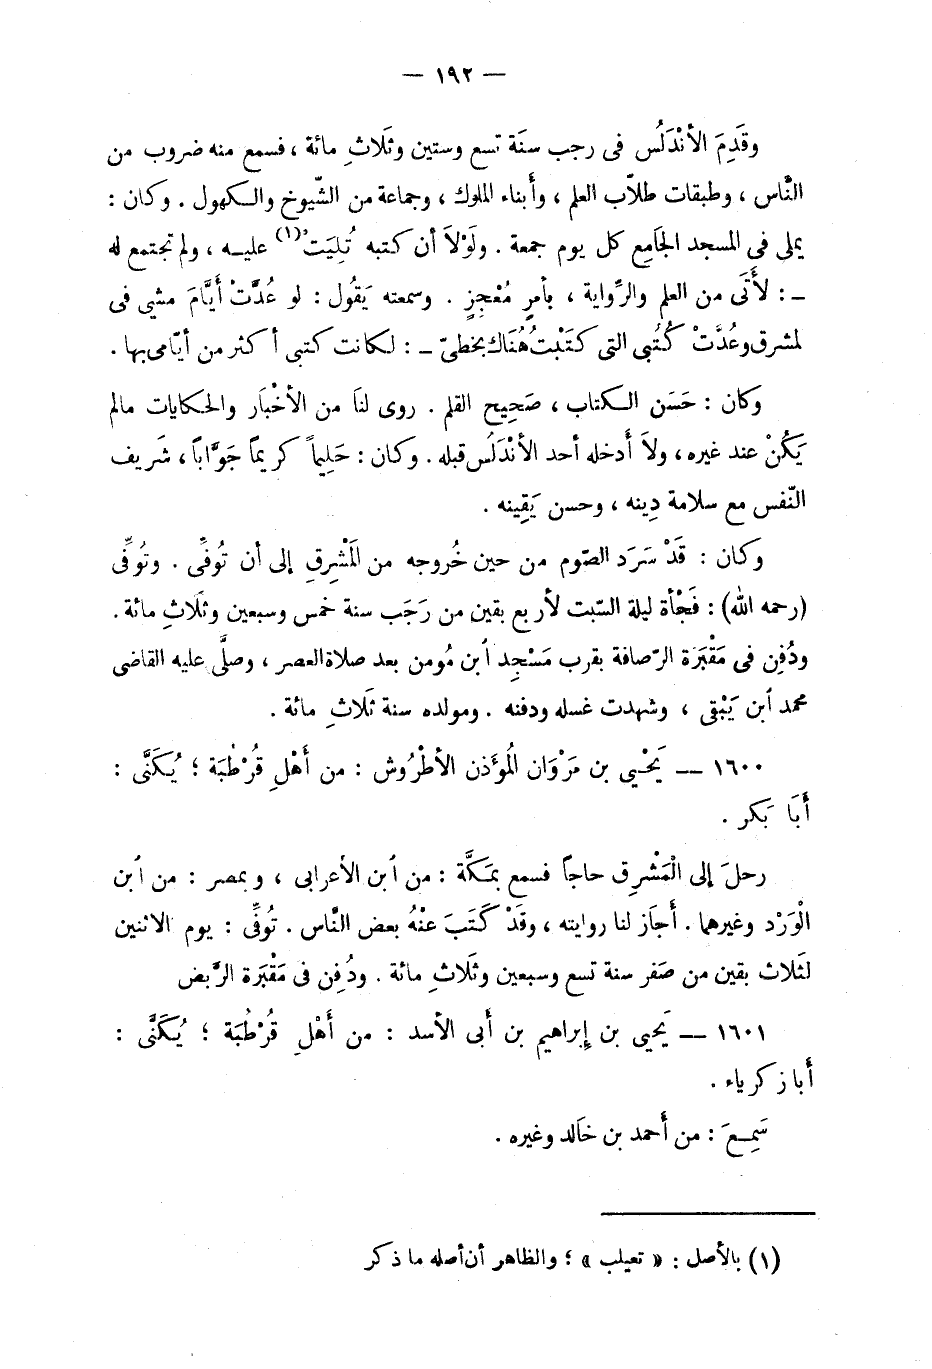 — ١٩٢ —
وقَدِمَ الأنْدَلُس فى رجب سنَة تسع وستين وثَلَاثِ مائة ، فسمع منه ضروب من
النَّاس ، وطبقات طلاّب العلم ، وأبناء الملوك ، وجماعة من الشّيوخ والكهول . وكان :
يملى فى المسجد الجَامِع كل يوم جمعة . ولَوْلاَ أن كتبه تُلِيَتْ (١) عليه ، ولم تجتمع له
ـ : لأَتَى من العلم والرِّواية ، بأمرٍ مُعْجِزٍ . وسمعته يَقُول : لو عُدَّتْ أيَّامَ مشيى فى
لمشرق وعُدَّتْ كُتُبى التى كَتَبْتُ هُنَاك بخطىّ ـ : لكانت كتبى أكثر من أيّامى بها .
وكان : حَسَن الكتاب ، صَحِيح القلم . روى لنَا من الأخْبَار والحكايات مالم
يَكُنْ عند غيره ، ولاَ أَدخله أحد الأنْدَلُس قبله . وكان : حَلِيماً كريماً جَوَّاباً ، شَريف
النّفس مع سلامة دِينه ، وحسن يَقِينه .
وكان : قَدْ سَرَد الصّوم من حين خُروجه من المَشْرِقِ إلى أن تُوفِّى . وتُوفِّى
(رحمه الله) : فَجْأة ليلة السّبت لأربع بقين من رَجَب سنة خمس وسبعين وثلاثِ مائة .
ودُفِن فى مَقْبَرَة الرّصافة بقرب مَسْجِد أبن مُومن بعد صلاة العصر ، وصلَّى عليه القاضى
محمد أبن يَبْقى ، وشهدت غسله ودفنه . ومولده سنة ثلَاثِ مائة .
١٦٠٠ — يَحْيي بن مَرْوَان المُؤَذن الأطْرُوش : من أَهْلِ قُرْطُبَة ؛ يُكَنَّى :
أَبَا بَكر .
رحلَ إلى الْمَشْرِق حاجاً فسمع بمَكَّة : من أبن الأعرابى ، وبمصر : من أبن
الْوَرْد وغيرهما . أَجَاز لنا روايته ، وقَدْ كَتَبَ عنْهُ بعض النَّاس . تُوفِّى : يوم الاثنين
لثَلاث بقين من صَفر سنة تسع وسبعين وثَلاثِ مائة . ودُفِن فى مَقْبَرَة الرَّبض
١٦٠١ — يَحيي بن إبراهيم بن أَبى الأسد : من أَهْلِ قُرْطُبَة ؛ يُكَنَّى :
أَبا زكرياء .
سَمِعَ : من أَحمد بن خَالد وغيره .
(١) بالأصل : « تعيلب » ؛ والظاهر أن أصله ما ذكر